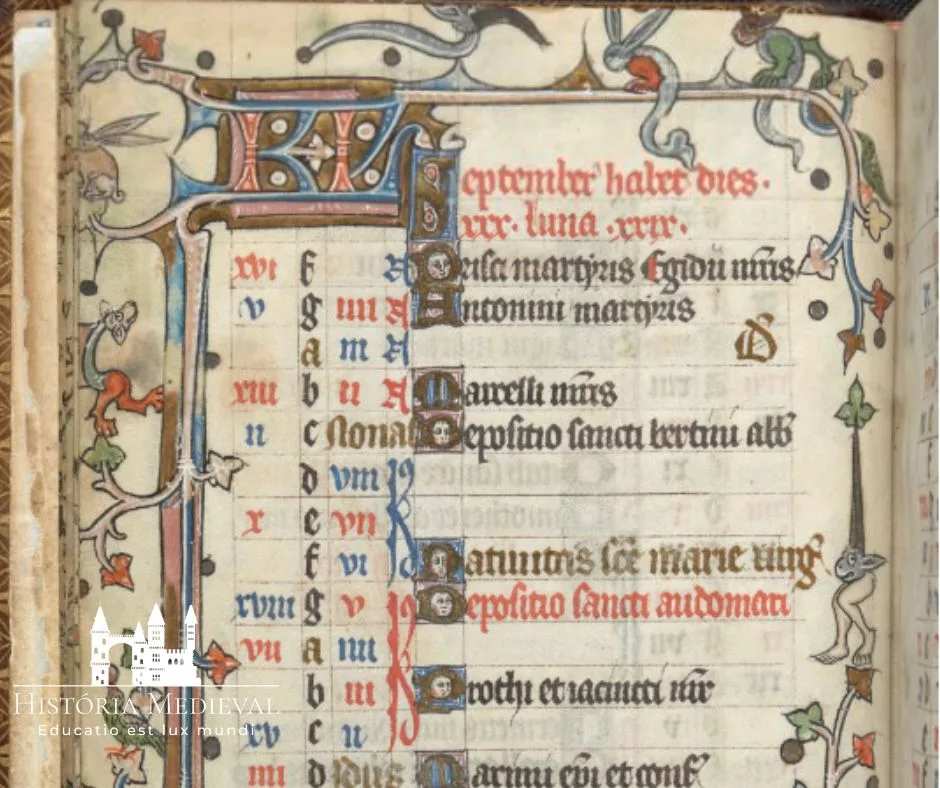 KL September habet dies.
xxx. luna .xxix.
xvi f Prisci martyris Egidii mris
v g iiii Antonini martyris
a iii D
xiii b ii Marcelli mris
ii c Nonas Depositio sancti bertini abb
d viii
x e vii
f vi Natiuitas sce marie uirg
xviii g v Depositio sancti audomari
vii a iiii
b iii Prothi et iacincti mr
xv c ii
iiii d Idus epi et conf
História Medieval
Educatio est lux mundi